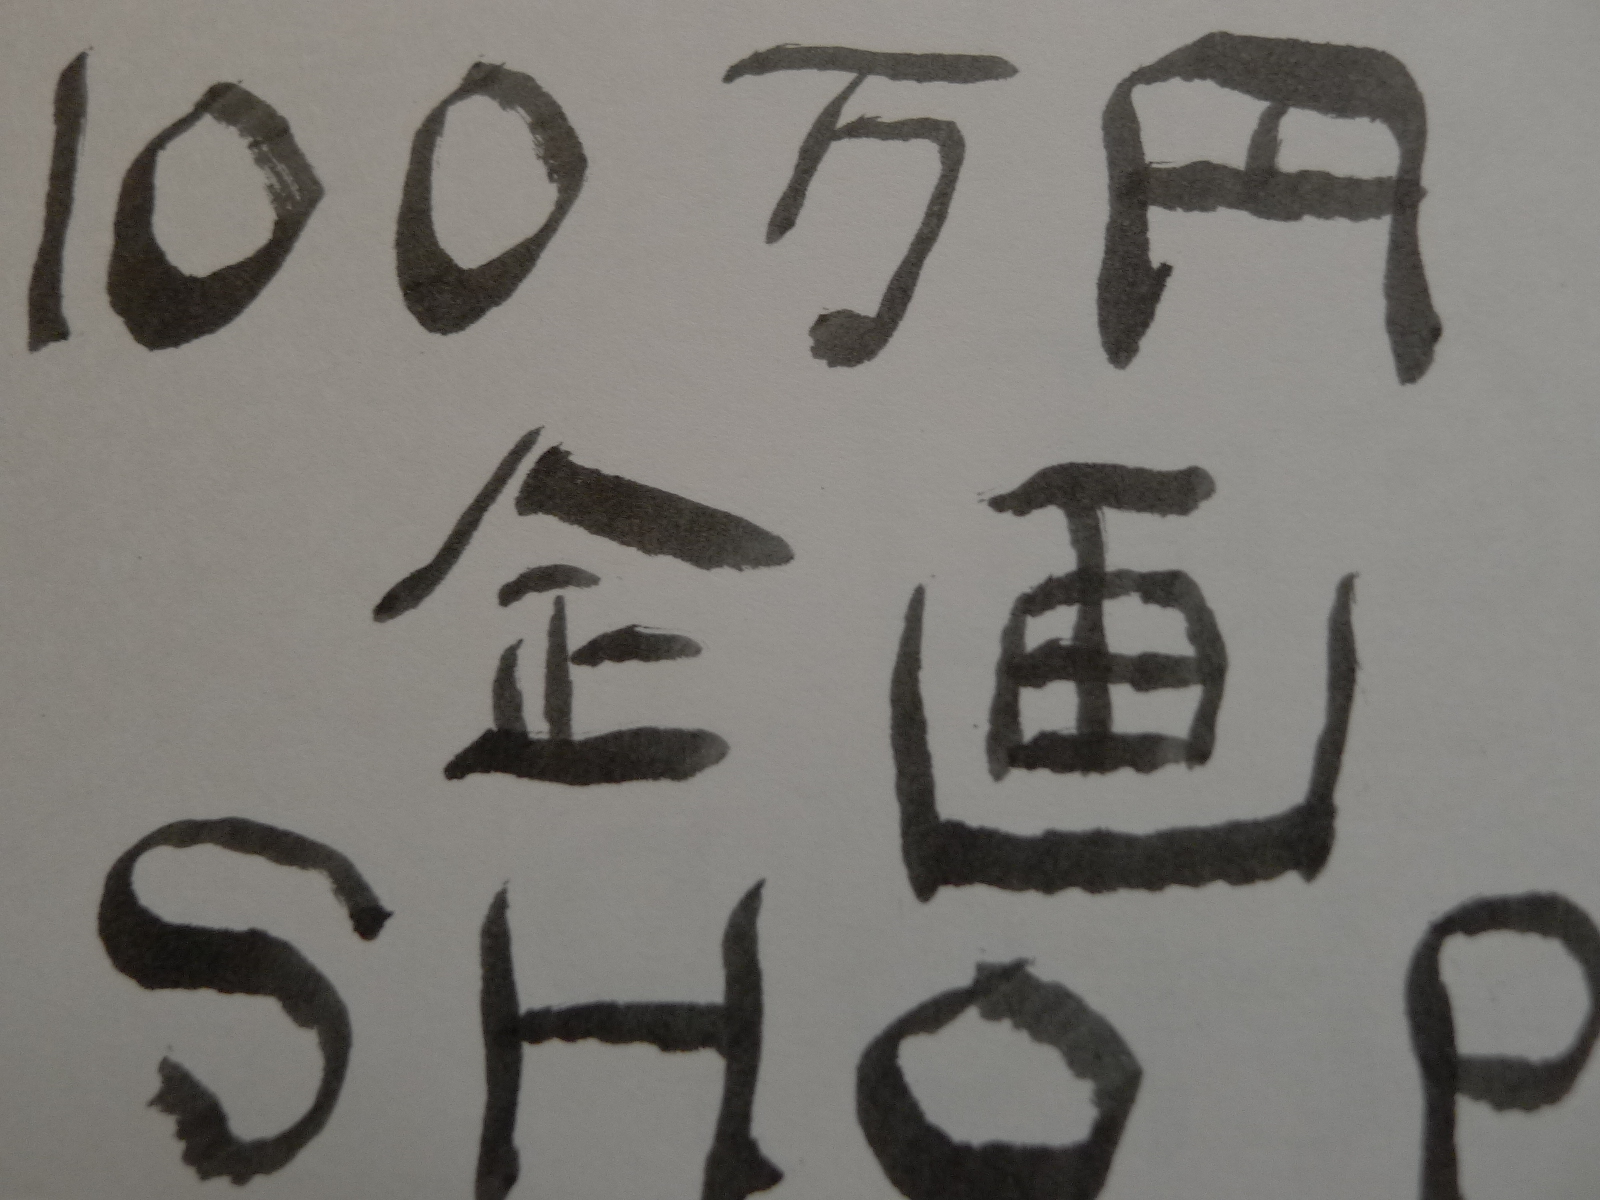 100万円
企画
SHOP